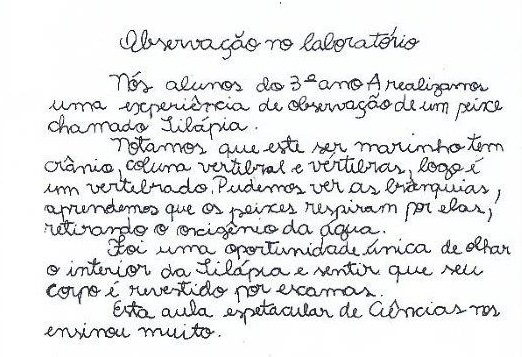 Observação no laboratório
Nós alunos do 3º ano A realizamos
uma experiência de observação de um peixe
chamado Tilápia.
Notamos que este ser marinho tem
crânio, coluna vertebral e vértebras, logo é
um vertebrado. Pudemos ver as brânquias,
aprendemos que os peixes respiram por elas,
retirando o oxigênio da água.
Foi uma oportunidade única de olhar
o interior da Tilápia e sentir que seu
corpo é revestido por escamas.
Esta aula espetacular de Ciências nos
ensinou muito.